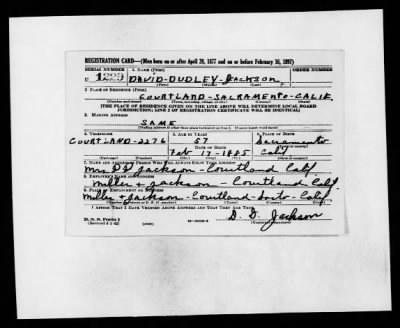 REGISTRATION CARD—(Men born on or after April 28, 1877 and on or before February 16, 1897)
SERIAL NUMBER 1. NAME (Print)
U DAVID-DUDLEY-JACKSON
(First) (Middle) (Last)
2. PLACE OF RESIDENCE (Print)
COURTLAND-SACRAMENTO-CALIF.
(Number and street) (Town, township, village, or city) (County) (State)
[THE PLACE OF RESIDENCE GIVEN ON THE LINE ABOVE WILL DETERMINE LOCAL BOARD
JURISDICTION; LINE 2 OF REGISTRATION CERTIFICATE WILL BE IDENTICAL]
3. MAILING ADDRESS
SAME
(Mailing address if other than place indicated on line 2. If same insert word same)
4. TELEPHONE 5. AGE IN YEARS 6. PLACE OF BIRTH
COURTLAND-2276 57 Sacramento
DATE OF BIRTH
Feb 17-1885 Calif
7. NAME AND ADDRESS OF PERSON WHO WILL ALWAYS KNOW YOUR ADDRESS
Mrs D D Jackson-Courtland Calif
8. EMPLOYER'S NAME AND ADDRESS
Miller & Jackson-Courtland Calif
9. PLACE OF EMPLOYMENT OR BUSINESS
Miller & Jackson-Courtland-Calif
I AFFIRM THAT I HAVE VERIFIED ABOVE ANSWERS AND THAT THEY ARE TRUE.
D. D. Jackson
D. S. S. Form 1